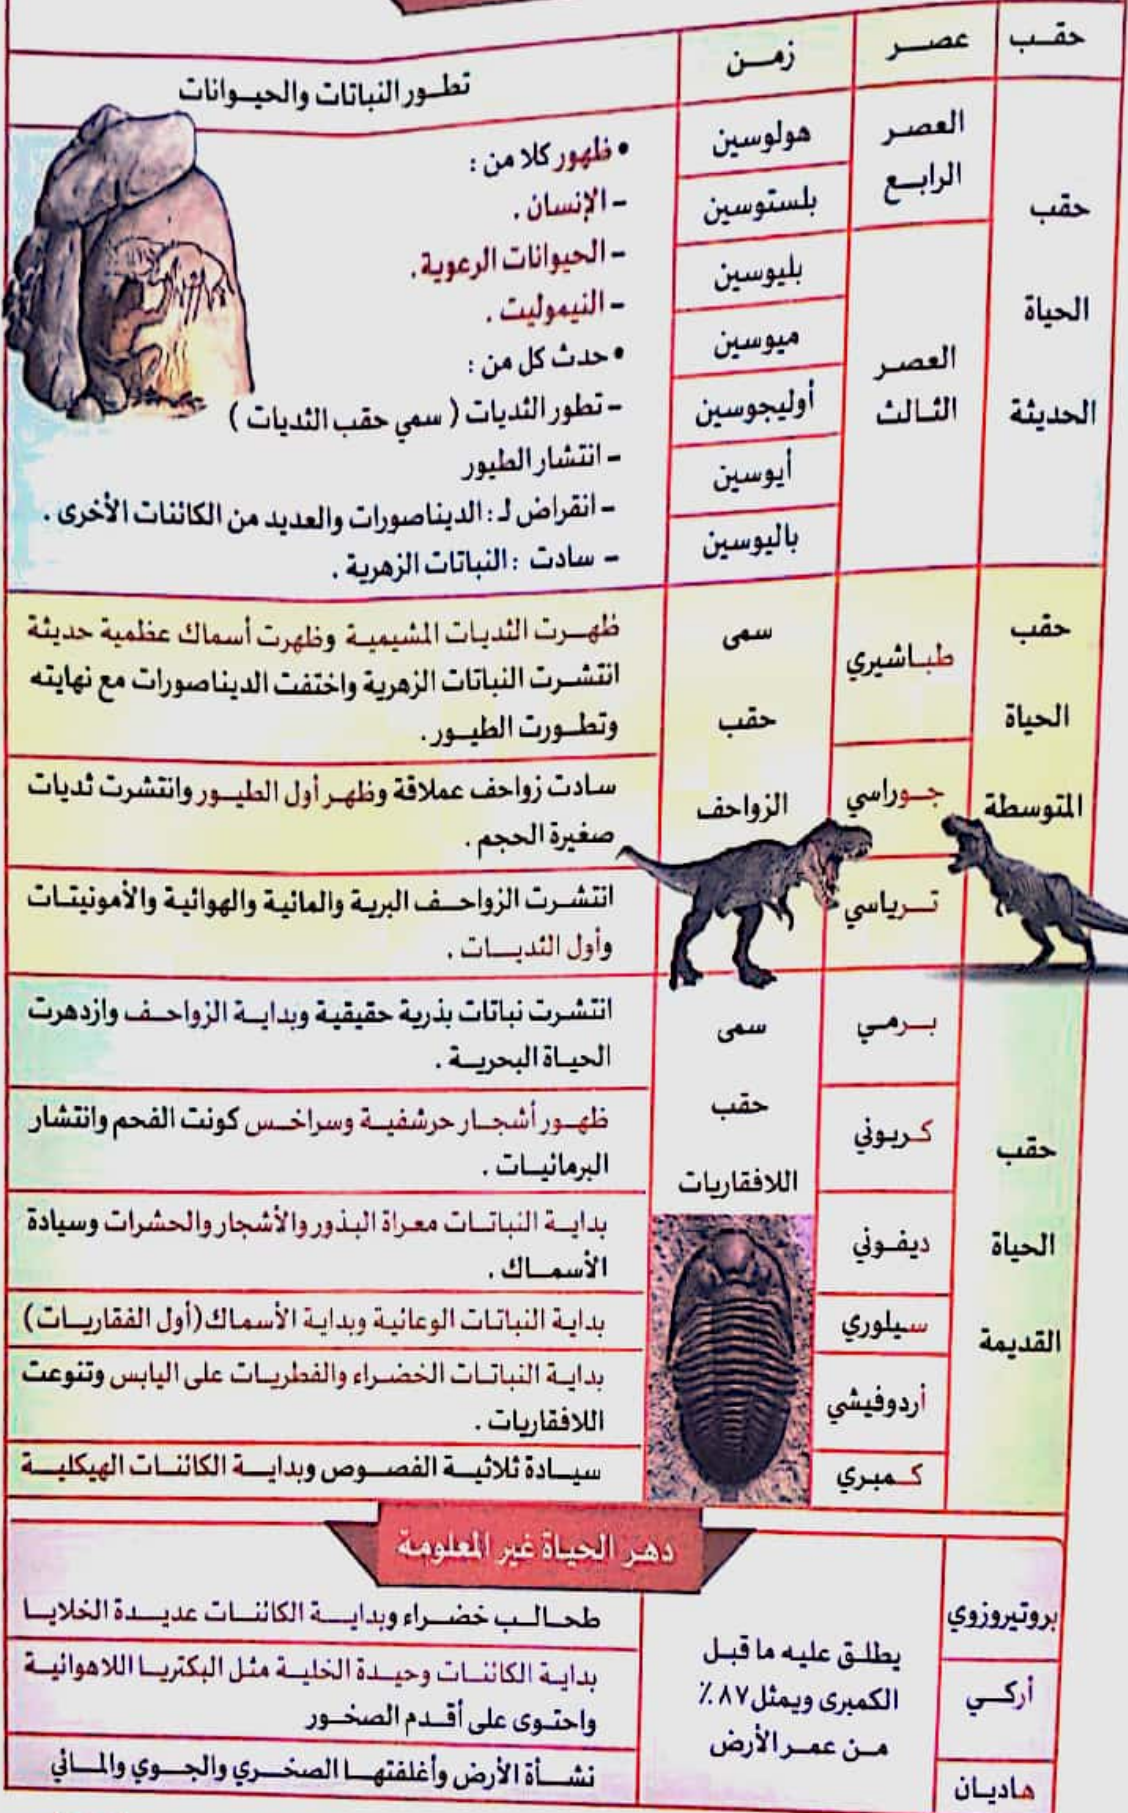 حقب عصر زمن تطور النباتات والحيوانات
حقب
الحياة
الحديثة
العصر
الرابع
هولوسين
بلستوسين
العصر
الثالث
بليوسين
ميوسين
أوليجوسين
أيوسين
باليوسين
• ظهور كلا من :
- الإنسان .
- الحيوانات الرعوية .
- النيموليت .
• حدث كل من :
- تطور الثديات ( سمي حقب الثديات )
- انتشار الطيور
- انقراض لـ : الديناصورات والعديد من الكائنات الأخرى .
- سادت : النباتات الزهرية .
حقب
الحياة
المتوسطة
سمى
حقب
الزواحف
طباشيري
ظهرت الثديات المشيمية وظهرت أسماك عظمية حديثة
انتشرت النباتات الزهرية واختفت الديناصورات مع نهايته
وتطورت الطيور .
جوراسي
سادت زواحف عملاقة وظهر أول الطيور وانتشرت ثديات
صغيرة الحجم .
ترياسي
انتشرت الزواحف البرية والمائية والهوائية والأمونيتات
وأول الثديات .
حقب
الحياة
القديمة
سمى
حقب
اللافقاريات
برمي
انتشرت نباتات بذرية حقيقية وبداية الزواحف وازدهرت
الحياة البحرية .
كربوني
ظهور أشجار حرشفية وسراخس كونت الفحم وانتشار
البرمائيات .
ديفوني
بداية النباتات معراة البذور والأشجار والحشرات وسيادة
الأسماك .
سيلوري
بداية النباتات الوعائية وبداية الأسماك (أول الفقاريات)
أردوفيشي
بداية النباتات الخضراء والفطريات على اليابس وتنوعت
اللافقاريات .
كمبري
سيادة ثلاثية الفصوص وبداية الكائنات الهيكلية
دهر الحياة غير المعلومة
يطلق عليه ما قبل
الكمبرى ويمثل ٨٧٪
من عمر الأرض
بروتيروزوي
طحالب خضراء وبداية الكائنات عديدة الخلايا
أركي
بداية الكائنات وحيدة الخلية مثل البكتريا اللاهوائية
واحتوى على أقدم الصخور
هاديان
نشأة الأرض وأغلفتها الصخري والجوي والمائي